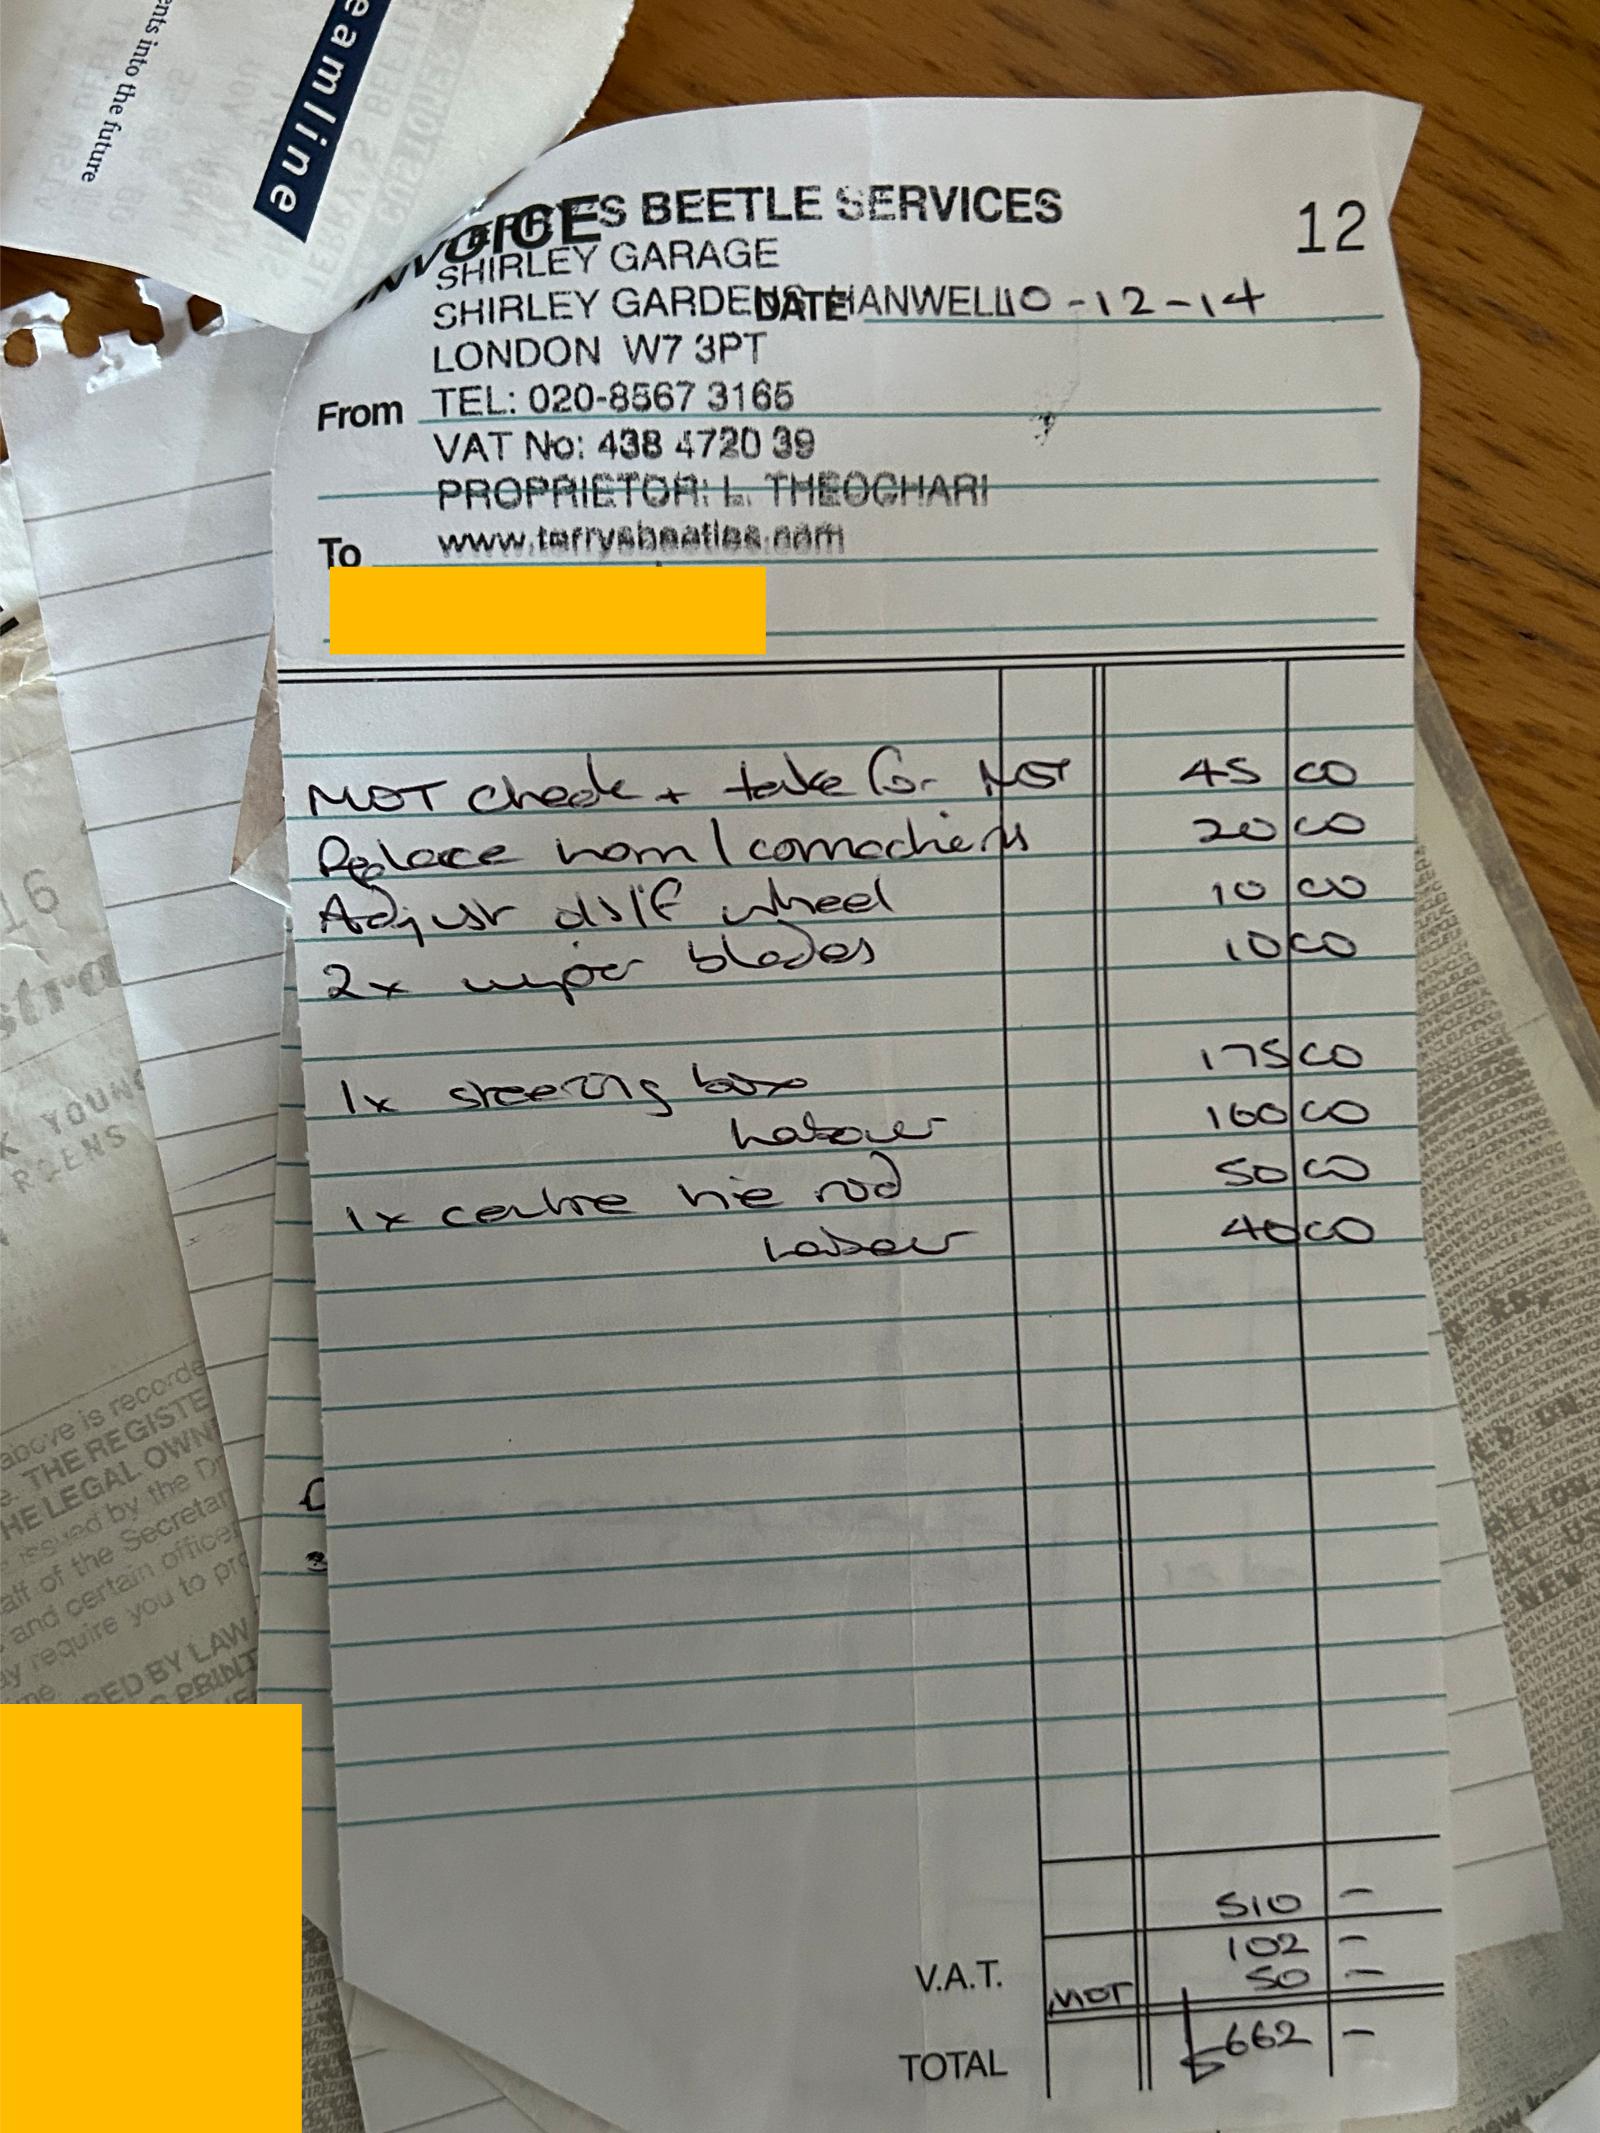 ents into the future
eamline
INVOICE
TERRY'S BEETLE SERVICES
12
SHIRLEY GARAGE
SHIRLEY GARDENS, HANWELL
DATE 10-12-14
LONDON W7 3PT
From
TEL: 020-8567 3165
VAT No: 438 4720 39
PROPRIETOR: L. THEOCHARI
To
www.terrysbeetles.com
MOT check + take for MOT 45 00
Replace horn / connections 20 00
Adjust d/s/f wheel 10 00
2x wiper blades 10 00
1x steering box 175 00
Labour 160 00
1x centre tie rod 50 00
Labour 40 00
510 -
V.A.T. 102 -
MOT 50 -
TOTAL £662 -
16
stra
K YOUN
above is recorde
THE REGISTE
HE LEGAL OWN
issued by the D
alf of the Secretar
and certain office
ay require you to pr
RED BY LAW